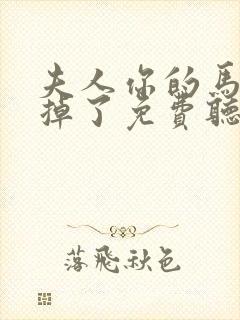 夫人你的馬
掉了免費聽
落飛秋色